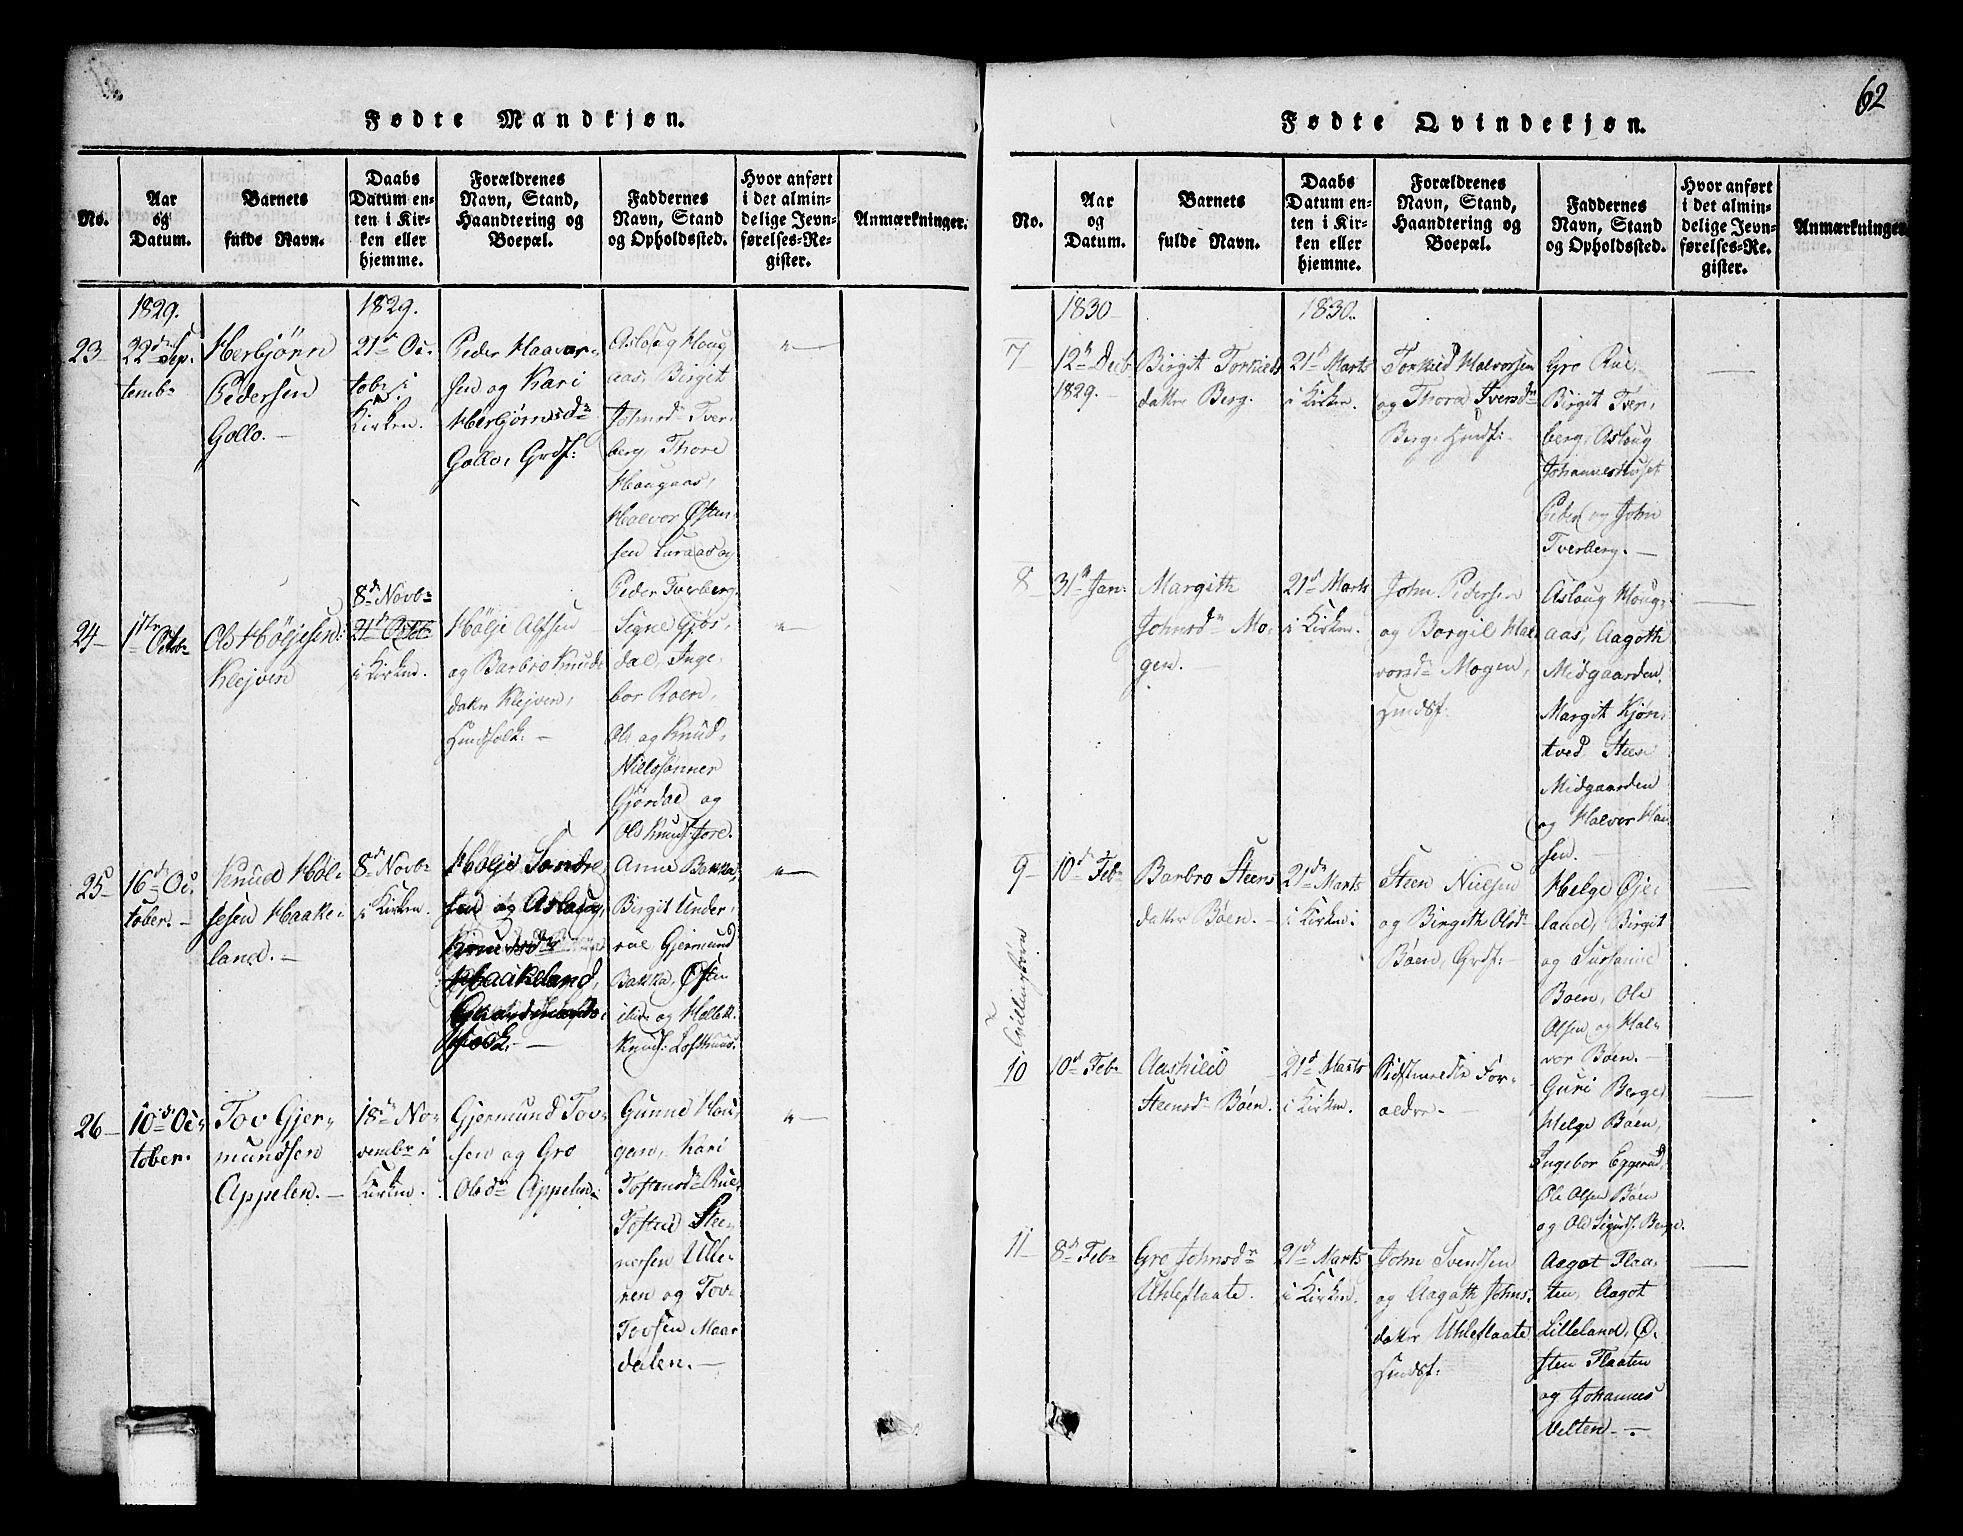 62
Fødte Mandkjøn.
No.
Aar
og
Datum.
Barnets
fulde Navn.
Daabs
Datum en-
ten i Kir-
ken eller
hjemme.
Forældrenes
Navn, Stand,
Haandtering og
Boepæl.
Faddernes
Navn, Stand
og Opholdssted.
Hvor anført
i det almin-
delige Jevn-
førelses-Re-
gister.
Anmærkninger.
1829.
1829.
23
22de Sep-
tembr
Herbjörn
Pedersen
Gollo.
21d Oc-
tobr i
Kirken.
Peder Haavar-
sen og Kari
Herbjørnsdr
Gollo, Grdf:
Asloug Houg
aas, Birgit
Johnsdr Tver-
berg, Thore
Hougaas,
Halvor Østen-
sen Luraas og
Peder Tverberg.
24
1ste Octobr
Ole Höljesen
Klejven
8d Novbr
21d Octbr
i Kirken.
Hölje Alfsen
og Barbro Knuds
datter Klejven,
Huusfolk.
Signe Gjøs-
dal, Inge-
bor Roen,
Ole og Knud
Nielssønner
Gjørdal og
Ole Knuds: Jore.
25
16d Oc-
tober.
Knud Höl-
jesen Haake-
land.
8d Novbr
i Kirken.
Hölje Sondre
sen og Aslaug
Knudsdr
Haakeland,
Anne Bakka,
Birgit Under-
rue Gjermund
Bakka, Østen
og Hellek
Knuds: Lofthuus.
26
10d Oc-
tober.
Tov Gjer-
mundsen
Appelen.
18d No-
vembr i
Kirken.
Gjermund Tov-
sen og Gro
Olsdr Appelen.
Gunne Hou-
gen, Kari
Tostensdr Rue,
Tosten Stee-
nersen Ulle-
ren og Tov
Tovsen Maar
dalen.
Fødte Qvindekjøn.
No.
Aar
og
Datum.
Barnets
fulde Navn.
Daabs
Datum en-
ten i Kir-
ken eller
hjemme.
Forældrenes
Navn, Stand,
Haandtering og
Boepæl.
Faddernes
Navn, Stand
og Opholdssted.
Hvor anført
i det almin-
delige Jevn-
førelses-Re-
gister.
Anmærkninger
1830
1830.
7
12d Decb
1829.
Birgit Torkilds
datter Berg.
21d Marts
i Kirken.
Torkild Halvorsen
og Thora Iversdr
Berg, Huusf:
Gro Rue
Birgit Tver-
berg, Aslaug
Johanneshuset
Peder og John
Tverberg.
8
31te Jan:
Margith
Johnsdr Mo-
gen.
21d Marts
i Kirken.
John Pedersen
og Borgil Hal
vorsdr Mogen,
Huusf:
Aslaug Houg-
aas, Aagoth
Midgaarden,
Margit Kjøn-
tved, Steen
Midgaarden
og Halvor Han-
sen.
Tvillingbørn
9
10d Febr
Barbro Steens
datter Böen.
21d Marts
i Kirken.
Steen Nielsen
og Birgith Olsdr
Böen, Grdf:
Helge Øje-
land, Birgit
og Sussanne
Boen, Ole
Olsen og Hal-
vor Böen.
10
10d Febr
Aashild
Steensdr Böen.
21d Marts
i Kirken.
Sidstmeldte For-
ældre.
Guri Berge,
Helge Boen,
Ingebor Eggerud,
Ole Olsen Böen
og Ole Sigurds. Berge.
11
8d Febr
Gro Johnsdr
Uhleflaate.
21d Marts
i Kirken.
John Svendsen
og Aagoth Johns-
datter Uhleflaate
Huusf:
Aagot Flaa-
ten, Aagot
Lilleland, Ø-
sten Flaaten
og Johannes
Velten.